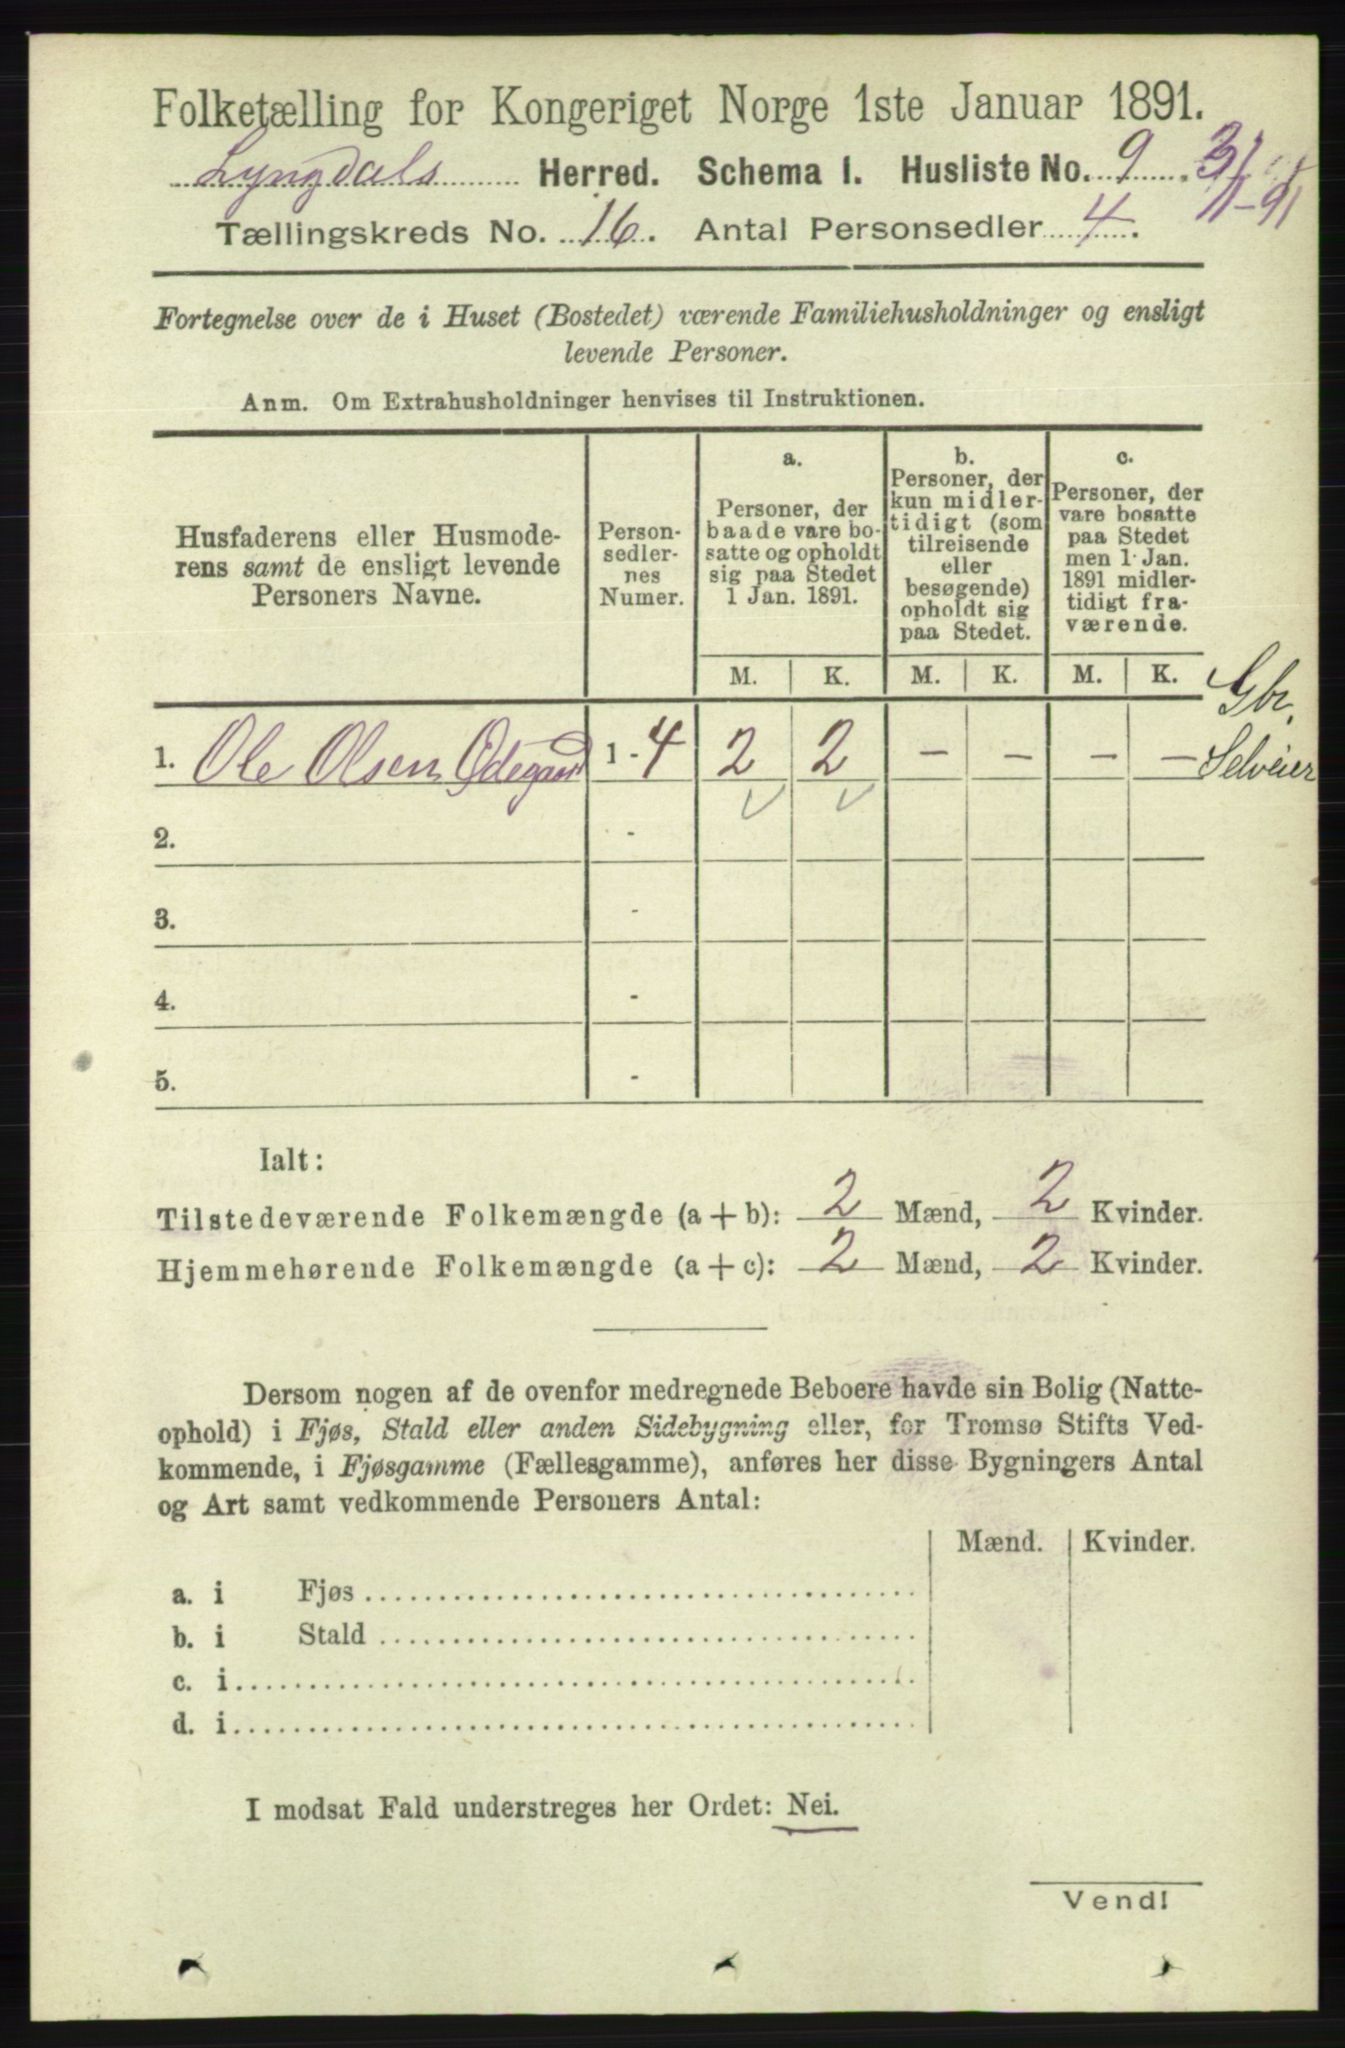 Folketælling for Kongeriget Norge 1ste Januar 1891.
Lyngdals Herred. Schema 1. Husliste No. 9.
Tællingskreds No. 16. Antal Personsedler 4.
Fortegnelse over de i Huset (Bostedet) værende Familiehusholdninger og ensligt
levende Personer.
Anm. Om Extrahusholdninger henvises til Instruktionen.
Husfaderens eller Husmode-
rens samt de ensligt levende
Personers Navne.
Person-
sedler-
nes
Numer.
a.
Personer, der
baade vare bo-
satte og opholdt
sig paa Stedet
1 Jan. 1891.
b.
Personer, der
kun midler-
tidigt (som
tilreisende
eller
besøgende)
opholdt sig
paa Stedet.
c.
Personer, der
vare bosatte
paa Stedet
men 1 Jan.
1891 midler-
tidigt fra-
værende.
M. K. M. K. M. K.
Gbr,
Selveier
1. Ole Olsen Ødegaard 1 - 4 2 2 - - - -
2. -
3. -
4. -
5. -
Ialt:
Tilstedeværende Folkemængde (a + b): 2 Mænd, 2 Kvinder.
Hjemmehørende Folkemængde (a + c): 2 Mænd, 2 Kvinder.
Dersom nogen af de ovenfor medregnede Beboere havde sin Bolig (Natte-
ophold) i Fjøs, Stald eller anden Sidebygning eller, for Tromsø Stifts Ved-
kommende, i Fjøsgamme (Fællesgamme), anføres her disse Bygningers Antal
og Art samt vedkommende Personers Antal:
Mænd. Kvinder.
a. i Fjøs
b. i Stald
c. i
d. i
I modsat Fald understreges her Ordet: Nei.
Vend!